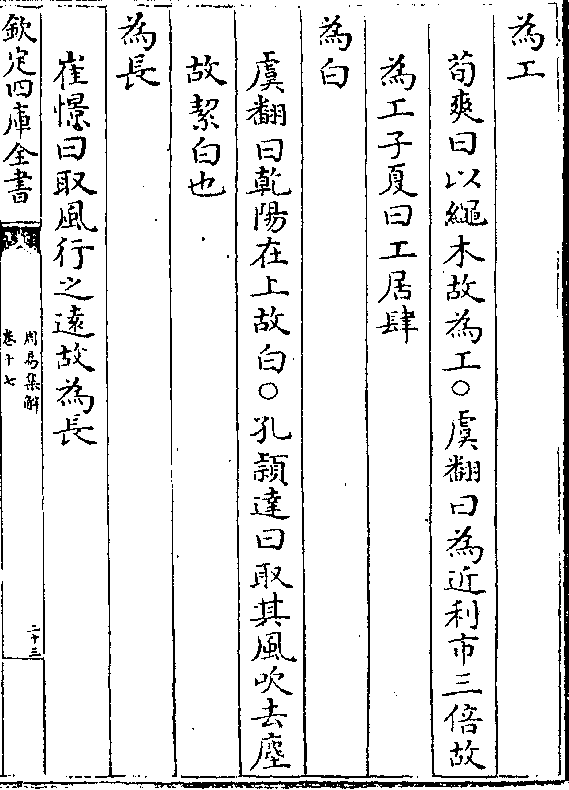 為工
荀爽曰以繩木故為工○虞翻曰為近利市三倍故
為工子夏曰工居肆
為白
虞翻曰乾陽在上故白○孔穎達曰取其風吹去塵
故絜白也
為長
崔憬曰取風行之遠故為長
欽定四庫全書
周易集解
卷十七
二十三